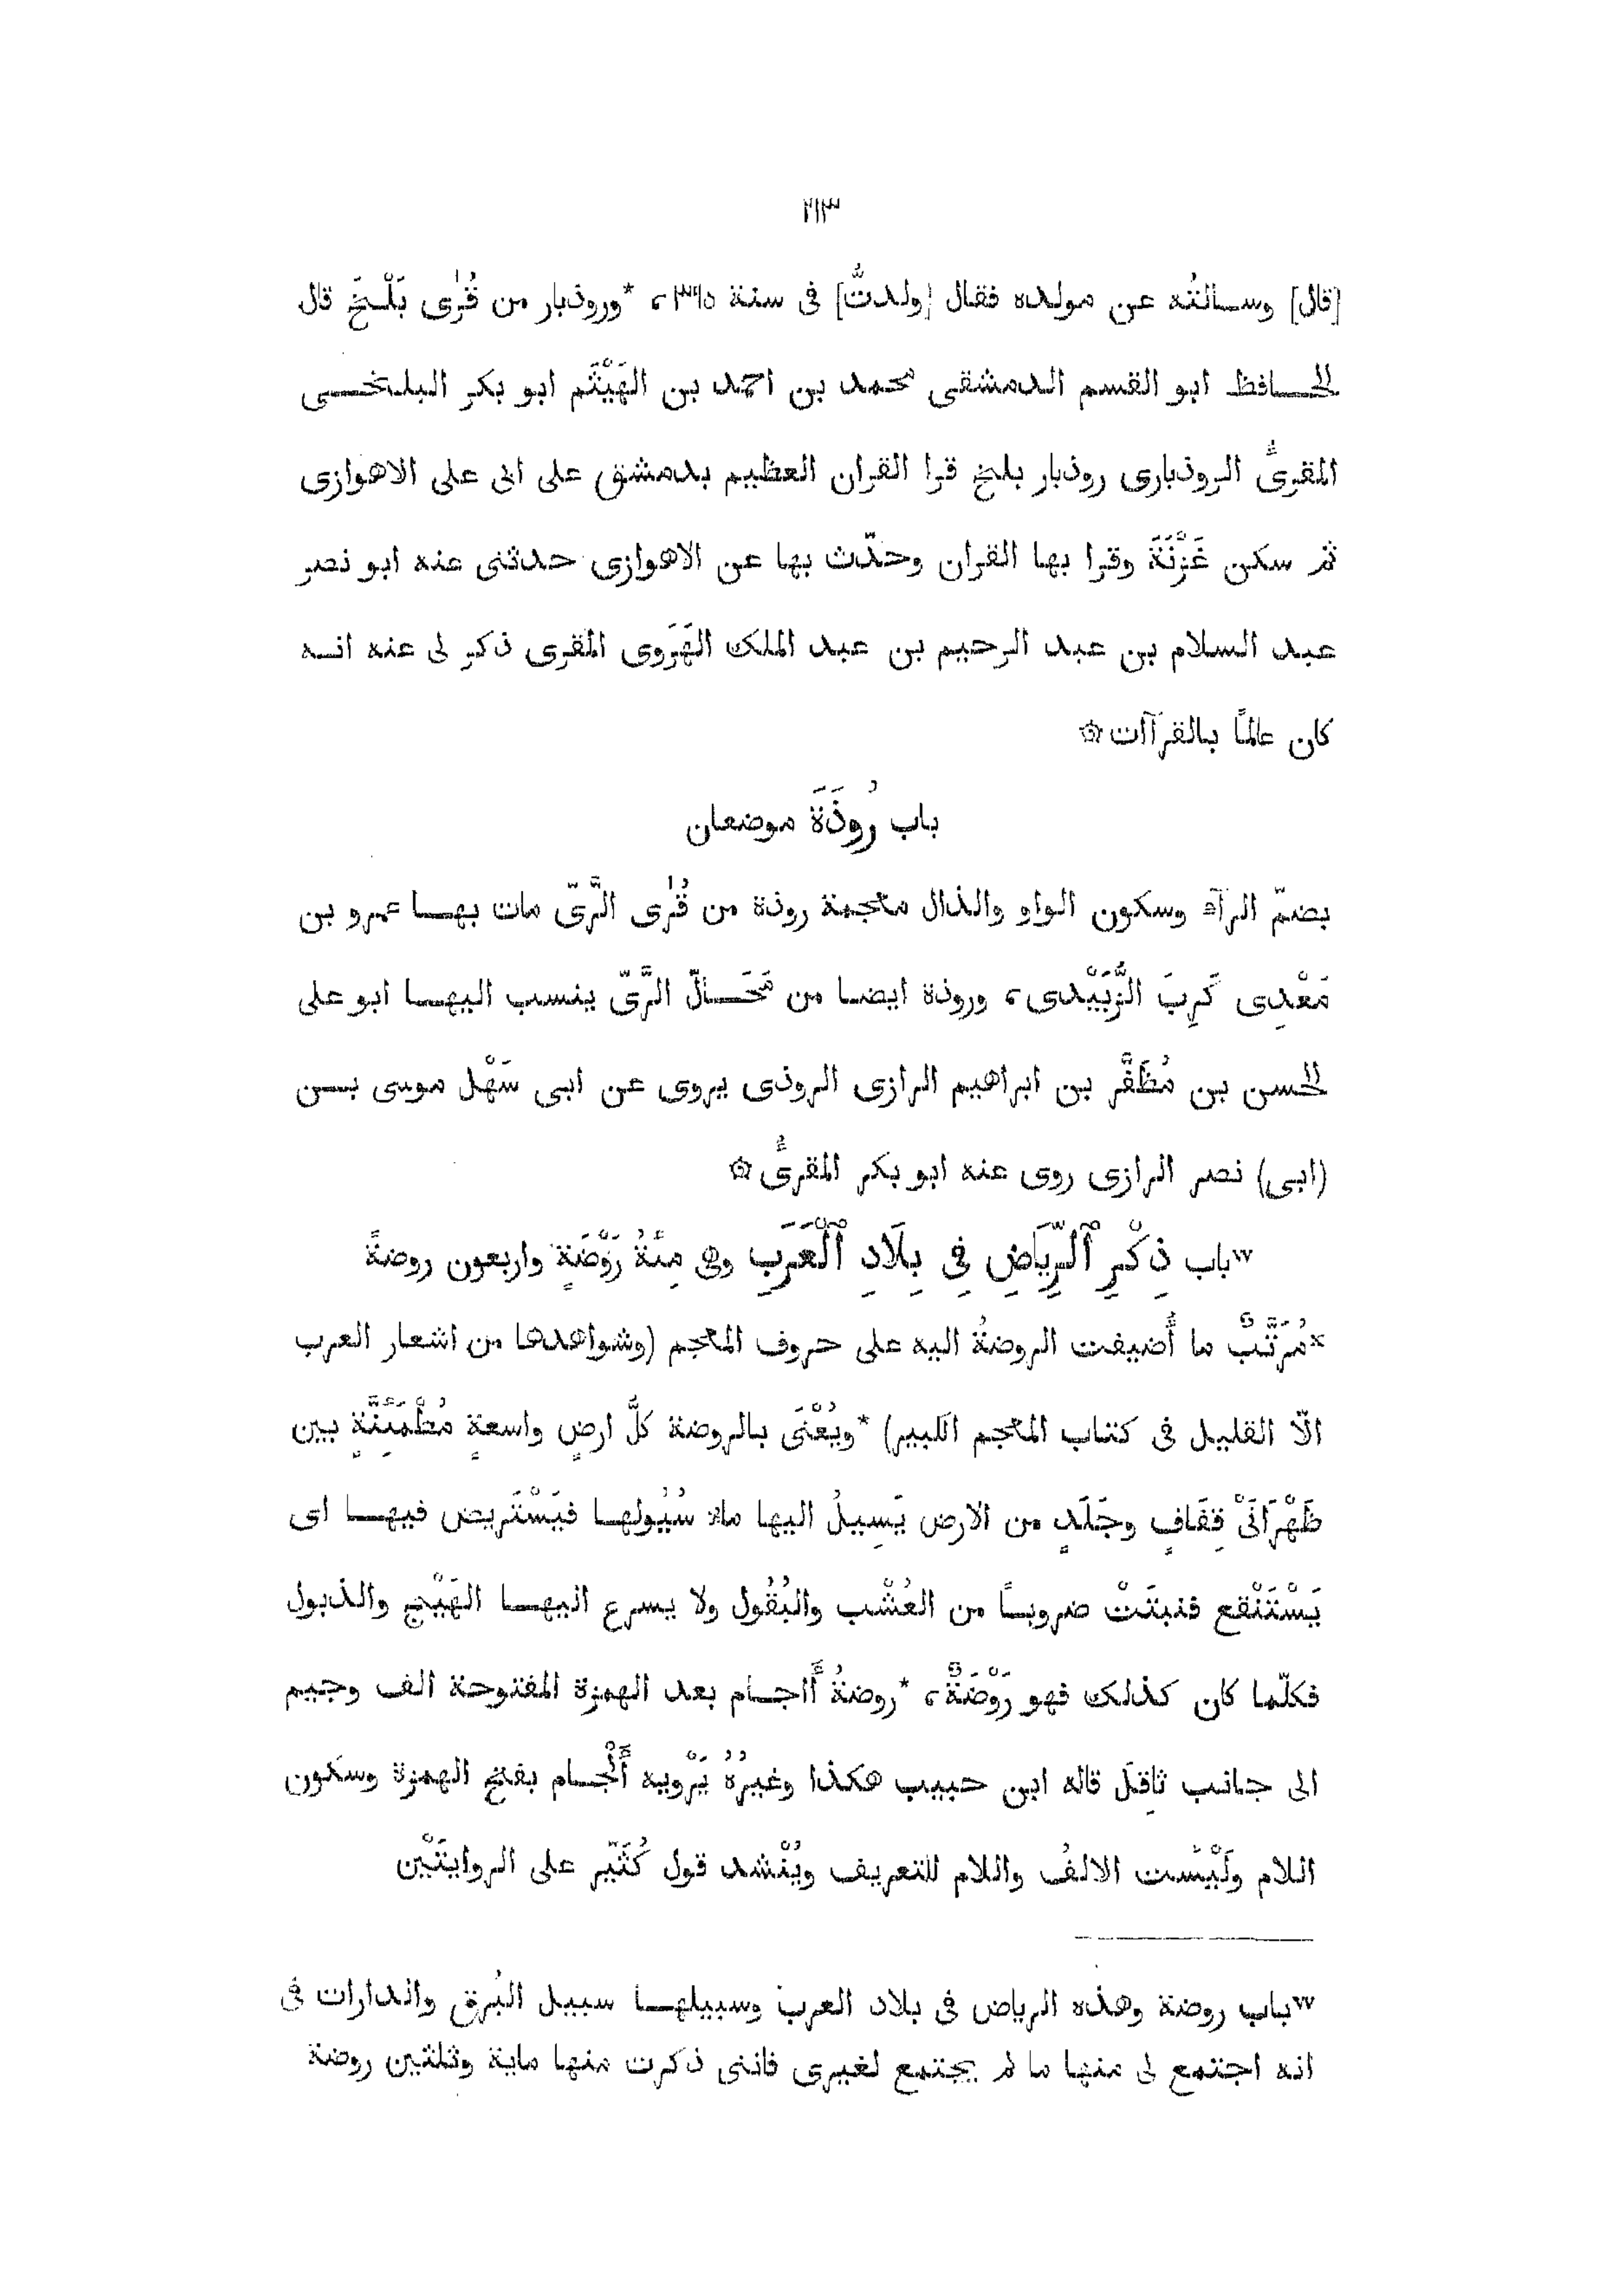 ٢١٣
[قال] وسالتُه عن مولده فقال [ولدتُّ] فى سنة ٣٦٥، *وروذبار من قُرَى بَلْخَ قال
الحافظ ابو القسم الدمشقى محمد بن احمد بن الهَيْثَم ابو بكر البلخى
المقرىُّ الروذبارى روذبار بلخ قرا القران العظيم بدمشق على ابى على الاهوازى
ثم سكن غَزْنَةَ وقرا بها القران وحدّث بها عن الاهوازى حدثنى عنه ابو نصر
عبد السلام بن عبد الرحيم بن عبد الملك الهَرَوى المقرى ذكر لى عنه انه
كان عالمًا بالقرآات ۞
باب رُوذَةَ موضعان
بضمّ الرآء وسكون الواو والذال معجمة روذة من قُرَى الرَّىّ مات بها عمرو بن
مَعْدِى كَرِبَ الزُّبَيْدى، وروذة ايضا من مَحَالّ الرَّىّ ينسب اليها ابو على
الحسن بن مُظَفَّر بن ابراهيم الرازى الروذى يروى عن ابى سَهْل موسى بن
(ابى) نصر الرازى روى عنه ابو بكر المقرىُّ ۞
wباب ذِكْرِ ٱلرِّيَاضِ فِى بِلَادِ ٱلْعَرَبِ وهى مِئَةُ رَوْضَةٍ واربعون روضةً
xمُرَتَّبٌ ما أُضيفت الروضةُ اليه على حروف المعجم (وشواهدها من اشعار العرب
الّا القليل فى كتاب المعجم الكبير) *ويُعْنَى بالروضة كلُّ ارضٍ واسعةٍ مُطْمَئِنَّةٍ بين
ظَهْرَانَىْ قِفَافٍ وجَلَدٍ من الارض يَسِيلُ اليها ماء سُيُولها فيَسْتَريض فيها اى
يَسْتَنْقع فنبتَتْ ضروبًا من العُشْب والبُقُول ولا يسرع اليها الهَيْج والذبول
فكلّما كان كذلك فهو رَوْضَةٌ، *روضةُ أَاجام بعد الهمزة المفتوحة الف وجيم
الى جانب ثاقِل قاله ابن حبيب هكذا وغيرُهُ يَرْويه أَلْجام بفتح الهمزة وسكون
اللام ولَيْسَت الالفُ واللام للتعريف ويُنْشد قول كُثَيّر على الروايتَيْن
wباب روضة وهذه الرياض فى بلاد العرب وسبيلها سبيل البُرق والدارات فى
انه اجتمع لى منها ما لم يجتمع لغيرى فاننى ذكرت منها ماية وثلثين روضة